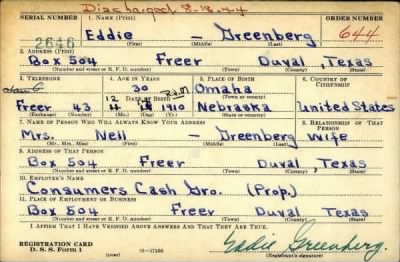 Discharged 8-18-44
SERIAL NUMBER 1. NAME (Print) ORDER NUMBER
2646 Eddie — Greenberg 644
(First) (Middle) (Last)
2. ADDRESS (Print)
Box 504 Freer Duval, Texas
(Number and street or R. F. D. number) (Town) (County) (State)
3. TELEPHONE 4. AGE IN YEARS 5. PLACE OF BIRTH 6. COUNTRY OF CITIZENSHIP
30 Omaha
DATE OF BIRTH (Town or county)
Freer 43 12 18 1910 Nebraska United States
(Exchange) (Number) (Mo.) (Day) (Yr.) (State or country)
7. NAME OF PERSON WHO WILL ALWAYS KNOW YOUR ADDRESS 8. RELATIONSHIP OF THAT PERSON
Mrs. Nell — Greenberg Wife
(Mr., Mrs., Miss) (First) (Middle) (Last)
9. ADDRESS OF THAT PERSON
Box 504 Freer Duval, Texas
(Number and street or R. F. D. number) (Town) (County) (State)
10. EMPLOYER'S NAME
Consumers Cash Gro. (Prop.)
11. PLACE OF EMPLOYMENT OR BUSINESS
Box 504 Freer Duval Texas
(Number and street or R. F. D. number) (Town) (County) (State)
I AFFIRM THAT I HAVE VERIFIED ABOVE ANSWERS AND THAT THEY ARE TRUE.
REGISTRATION CARD
D. S. S. Form 1 16—17105 Eddie Greenberg.
(Registrant's signature)